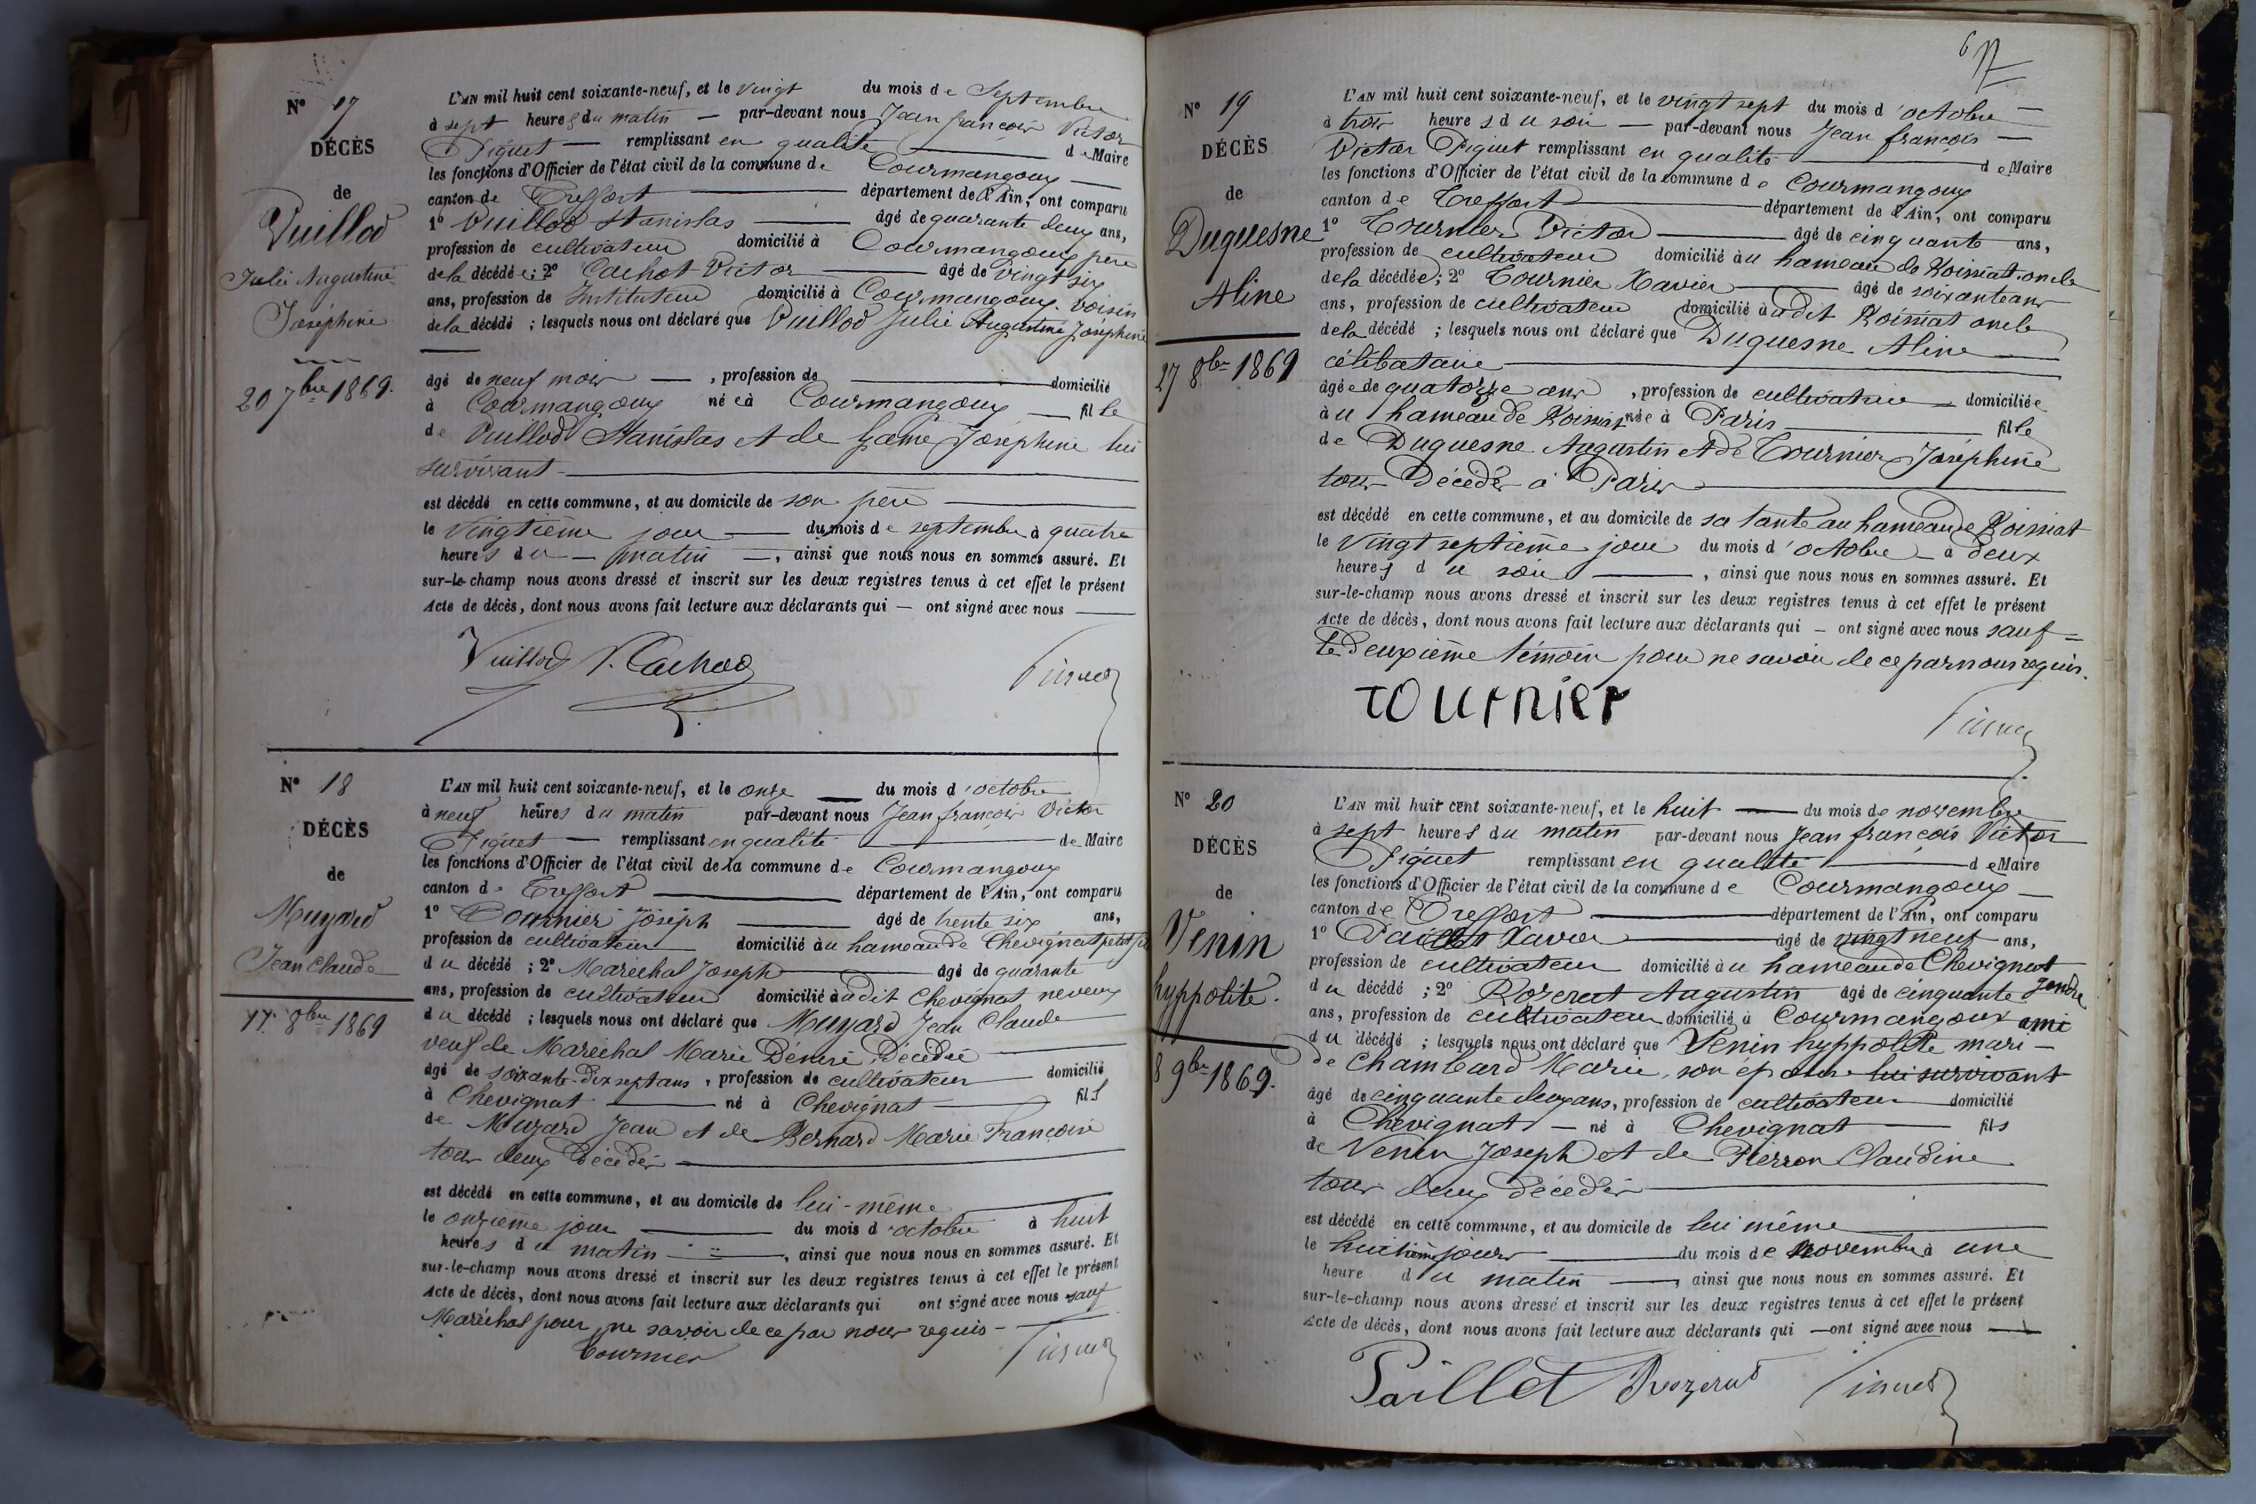 N° 17
DÉCÈS
de
Vuillod
Julie Augustine
Joséphine
20 7bre 1869.
L'AN mil huit cent soixante-neuf, et le vingt du mois de Septembre
à sept heures du matin — par-devant nous Jean françois Victor
Piquet — remplissant en qualité de Maire
les fonctions d'Officier de l'état civil de la commune de Courmangoux
canton de Treffort département de l'Ain, ont comparu
1° Vuillod Stanislas âgé de quarante deux ans,
profession de cultivateur domicilié à Courmangoux père
de la décédée; 2° Cachot Victor âgé de vingt six
ans, profession de Instituteur domicilié à Courmangoux voisin
de la décédé ; lesquels nous ont déclaré que Vuillod Julie Augustine Joséphine
âgé de neuf mois — , profession de domicilié
à Courmangoux née à Courmangoux — fille
de Vuillod Stanislas et de Joséphine lui
survivant
est décédé en cette commune, et au domicile de son père
le vingtième jour — du mois de septembre à quatre
heures du — matin —, ainsi que nous nous en sommes assuré. Et
sur-le-champ nous avons dressé et inscrit sur les deux registres tenus à cet effet le présent
Acte de décès, dont nous avons fait lecture aux déclarants qui — ont signé avec nous
Vuillod V. Cachod Piquet
N° 18
DÉCÈS
de
Muyard
Jean Claude
8bre 1869
L'AN mil huit cent soixante-neuf, et le onze du mois d'octobre
à neuf heures du matin par-devant nous Jean françois Victor
Piquet — remplissant en qualité de Maire
les fonctions d'Officier de l'état civil de la commune de Courmangoux
canton de Treffort département de l'Ain, ont comparu
1° Tournier Joseph âgé de trente six ans,
profession de cultivateur domicilié au hameau de Chevignat petit fils
du décédé ; 2° Maréchal Joseph âgé de quarante
ans, profession de cultivateur domicilié audit Chevignat neveux
du décédé ; lesquels nous ont déclaré que Muyard Jean Claude
veuf de Maréchal Marie Décédée
âgé de soixante-dix sept ans, profession de cultivateur domicilié
à Chevignat né à Chevignat fils
de Muyard Jean et de Bernard Marie Françoise
tous deux Décédés
est décédé en cette commune, et au domicile de lui-même
le onzième jour du mois d'octobre à huit
heures du matin, ainsi que nous nous en sommes assuré. Et
sur-le-champ nous avons dressé et inscrit sur les deux registres tenus à cet effet le présent
Acte de décès, dont nous avons fait lecture aux déclarants qui ont signé avec nous sauf
Maréchal pour ne savoir de ce par nous requis —
Tournier Piquet
N° 19
DÉCÈS
de
Duquesne
Aline
27 8bre 1869
L'AN mil huit cent soixante-neuf, et le vingt sept du mois d'octobre —
à trois heures du soir — par-devant nous Jean françois —
Victor Piquet remplissant en qualité de Maire
les fonctions d'Officier de l'état civil de la commune de Courmangoux
canton de Treffort département de l'Ain, ont comparu
1° Tournier Victor âgé de cinquante ans,
profession de cultivateur domicilié au hameau de Roissiat oncle
de la décédée; 2° Tournier Xavier âgé de soixante ans
ans, profession de cultivateur domicilié audit Roissiat oncle
de la décédé ; lesquels nous ont déclaré que Duquesne Aline —
célibataire
âgée de quatorze ans , profession de cultivatrice — domiciliée
à u hameau de Roissiat née à Paris fille
de Duquesne Augustin et de Tournier Joséphine
tous Décédés à Paris
est décédé en cette commune, et au domicile de sa tante au hameau de Roissiat
le vingt septième jour du mois d'octobre — à deux
heures du soir, ainsi que nous nous en sommes assuré. Et
sur-le-champ nous avons dressé et inscrit sur les deux registres tenus à cet effet le présent
Acte de décès, dont nous avons fait lecture aux déclarants qui — ont signé avec nous sauf
le deuxième témoin pour ne savoir de ce par nous requis.
Tournier Piquet
N° 20
DÉCÈS
de
Venin
hyppolite.
8 9bre 1869.
L'AN mil huit cent soixante-neuf, et le huit — du mois de novembre
à sept heures du matin par-devant nous Jean françois Victor
Piquet remplissant en qualité de Maire
les fonctions d'Officier de l'état civil de la commune de Courmangoux —
canton de Treffort département de l'Ain, ont comparu
1° Paillet Xavier âgé de vingt neuf ans,
profession de cultivateur domicilié au hameau de Chevignat gendre
du décédé ; 2° Rozerat Augustin âgé de cinquante
ans, profession de cultivateur domicilié à Courmangoux ami
du décédé ; lesquels nous ont déclaré que Venin hyppolite mari —
de Chambard Marie, son épouse lui survivant
âgé de cinquante deux ans, profession de cultivateur domicilié
à Chevignat — né à Chevignat fils
de Venin Joseph et de Pierron Claudine
tous deux décédés
est décédé en cette commune, et au domicile de lui même
le huitième jour du mois de novembre à une
heure du matin, ainsi que nous nous en sommes assuré. Et
sur-le-champ nous avons dressé et inscrit sur les deux registres tenus à cet effet le présent
Acte de décès, dont nous avons fait lecture aux déclarants qui — ont signé avec nous
Paillet Rozerat Piquet